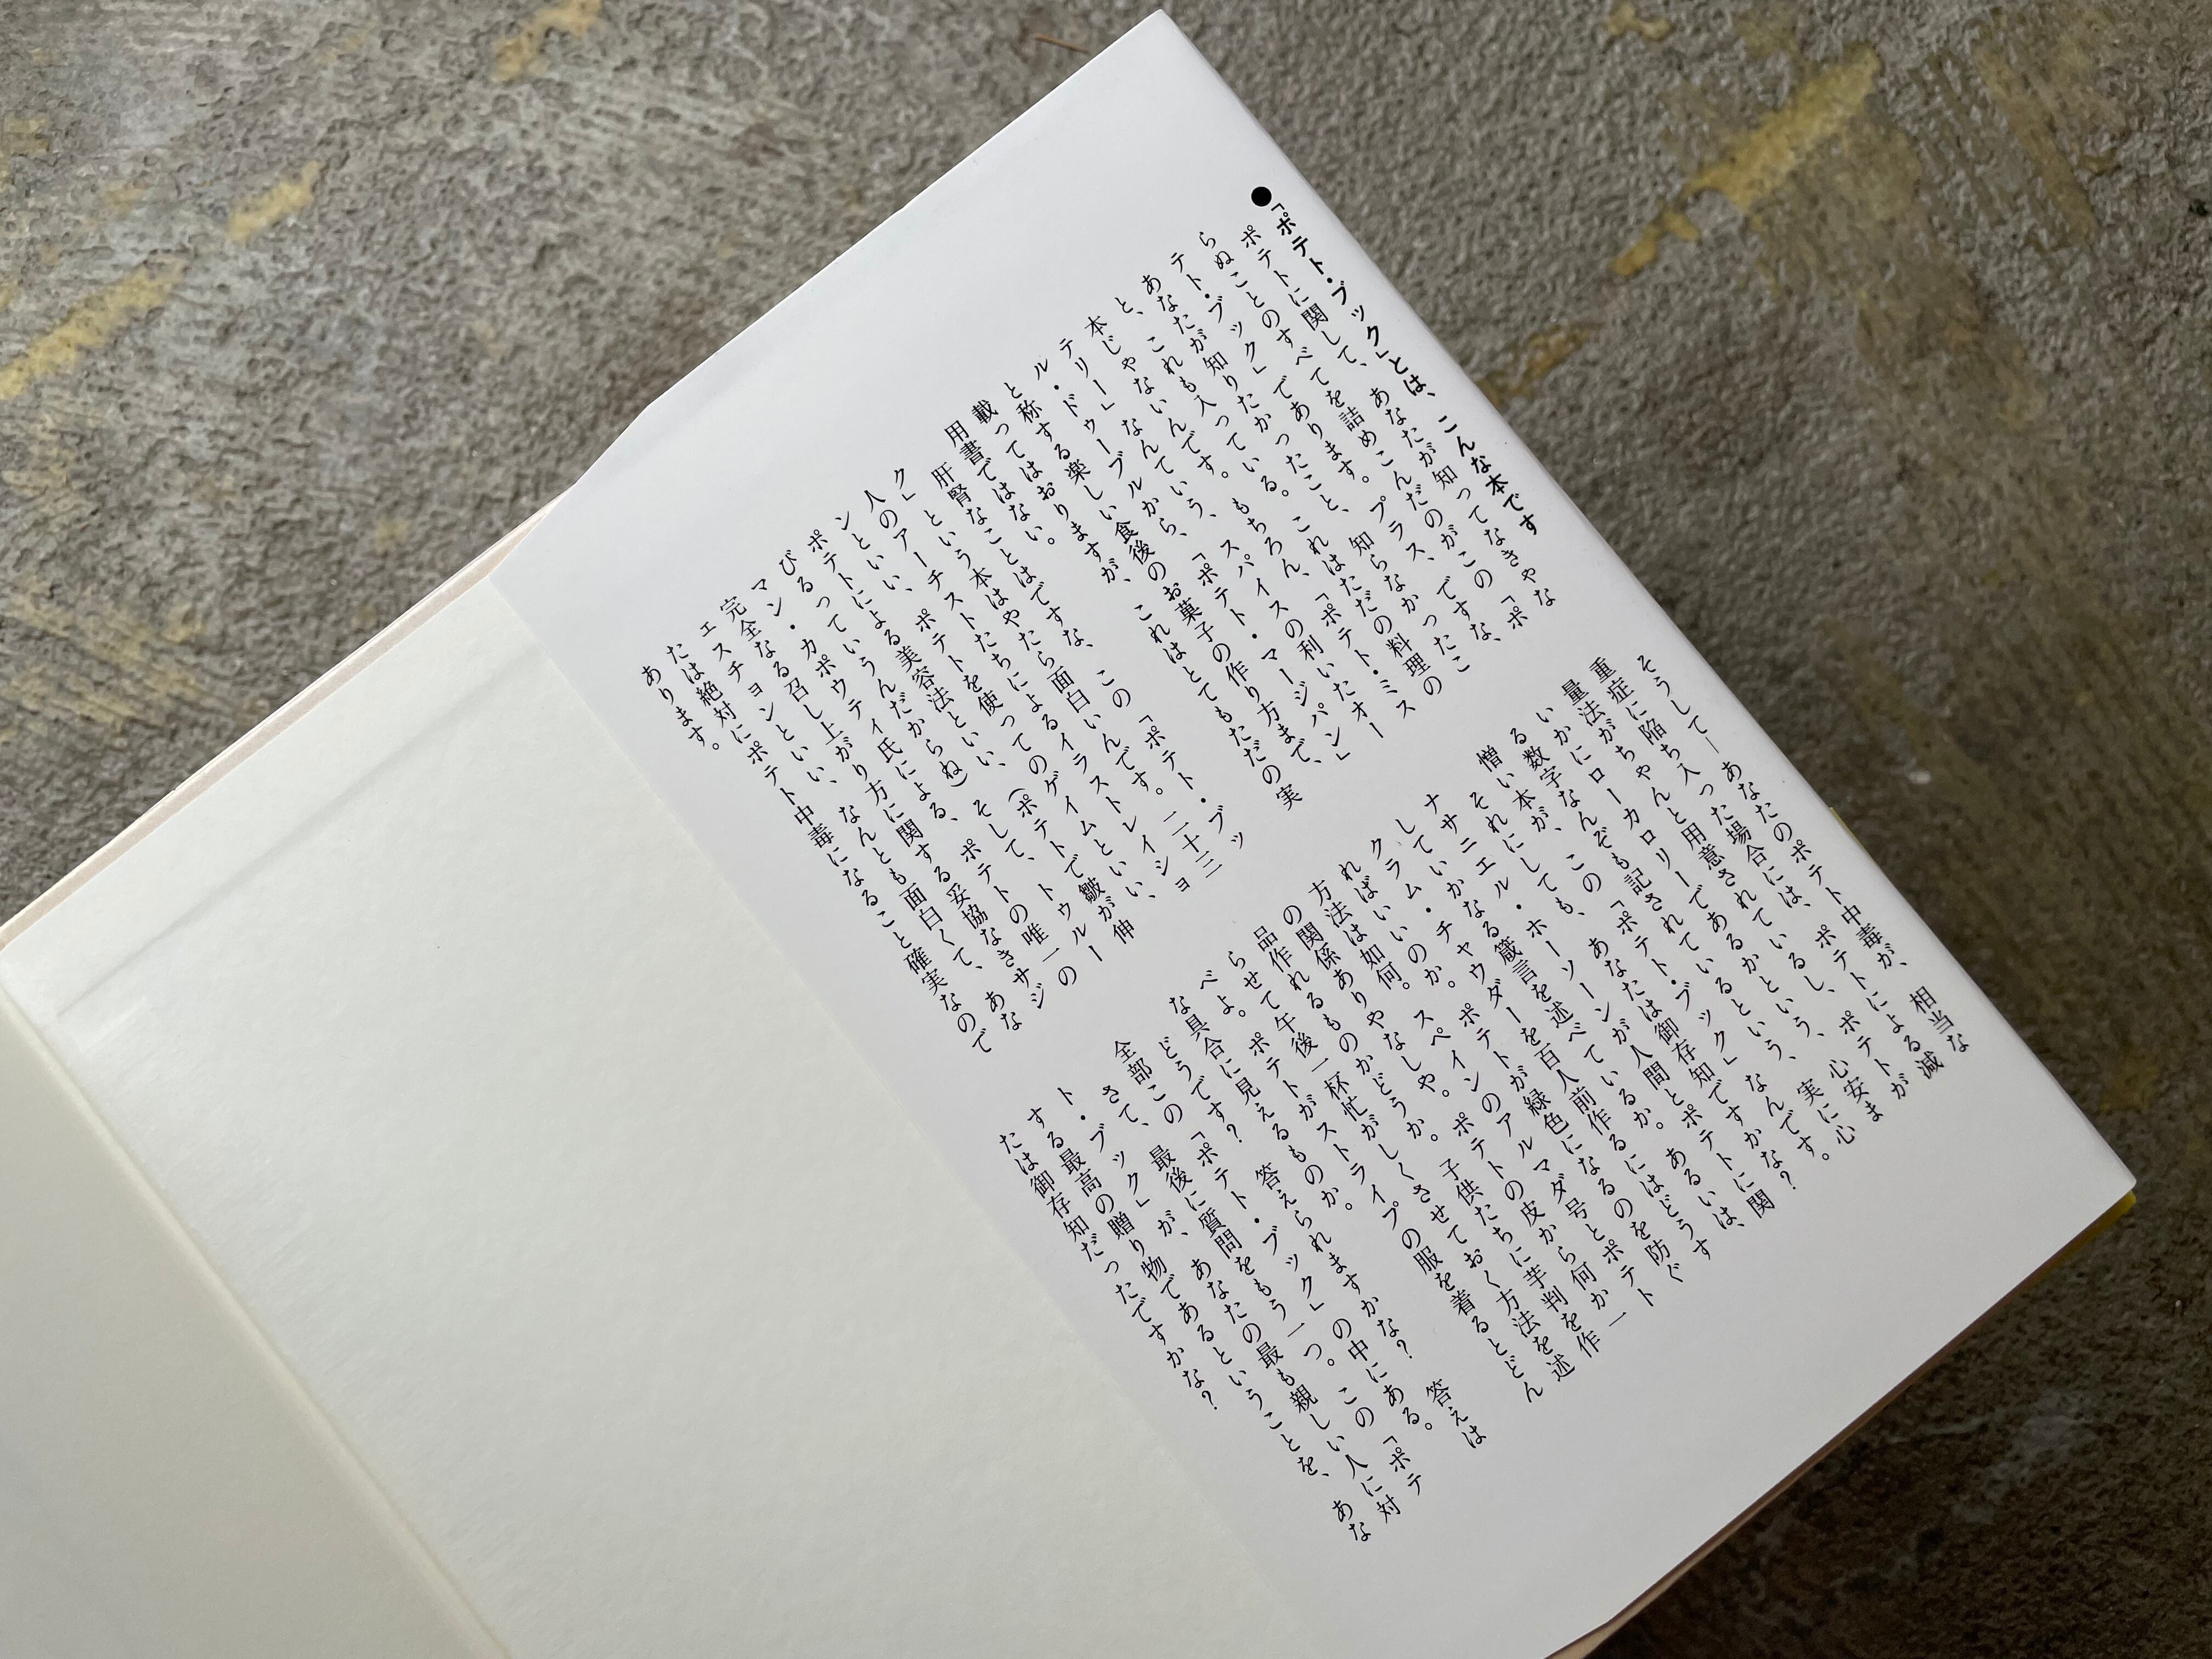 ●「ポテト・ブック」とは、こんな本です
ポテトに関して、あなたが知ってなきゃな
らぬことのすべてを詰めこんだのがこの「ポ
テト・ブック」であります。プラス、ですな、
あなたが知りたかったこと、知らなかったこ
と、これも入っている。これはただの料理の
本じゃないんです。もちろん、「ポテト・ミス
テリー」なんていう、スパイスの利いたオー
ル・ドゥーブルから、「ポテト・マージパン」
と称する楽しい食後のお菓子の作り方まで、
載ってはおりますが、これはとてもただの実
用書ではない。
肝腎なことはですな、この「ポテト・ブッ
ク」という本はやたら面白いんです。二十三
人のアーチストたちによるイラストレイショ
ンといい、ポテトを使ってのゲイムといい、
ポテトによる美容法といい、(ポテトで皺が伸
びるっていうんだからね)そして、トゥルー
マン・カポウティ氏による、ポテトの唯一の
完全なる召し上がり方に関する妥協なきサジ
ェスチョンといい、なんとも面白くて、あな
たは絶対にポテト中毒になること確実なので
あります。
そうして—あなたのポテト中毒が、相当な
重症に陥ち入った場合には、ポテトによる減
量法がちゃんと用意されているし、ポテトが
いかにローカロリーであるかという、心安ま
る数字なんぞも記されているという、実に心
憎い本が、この「ポテト・ブック」なんです。
それにしても、あなたは御存知ですかな?
ナサニエル・ホーソーンが人間とポテトに関
していかなる箴言を述べているか。あるいは、
クラム・チャウダーを百人前作るにはどうす
ればいいのか。ポテトが緑色になるのを防ぐ
方法は如何。スペインのアルマダ号とポテト
の関係ありやなしや。ポテトの皮から何か一
品作れるものかどうか。子供たちに芋判を作
らせて午後一杯忙がしくさせておく方法を述
べよ。ポテトがストライプの服を着るとどん
な具合に見えるものか。
どうです? 答えられますかな? 答えは
全部この「ポテト・ブック」の中にある。
さて、最後に質問をもう一つ。この「ポテ
ト・ブック」が、あなたの最も親しい人に対
する最高の贈り物であるということを、あな
たは御存知だったですかな?